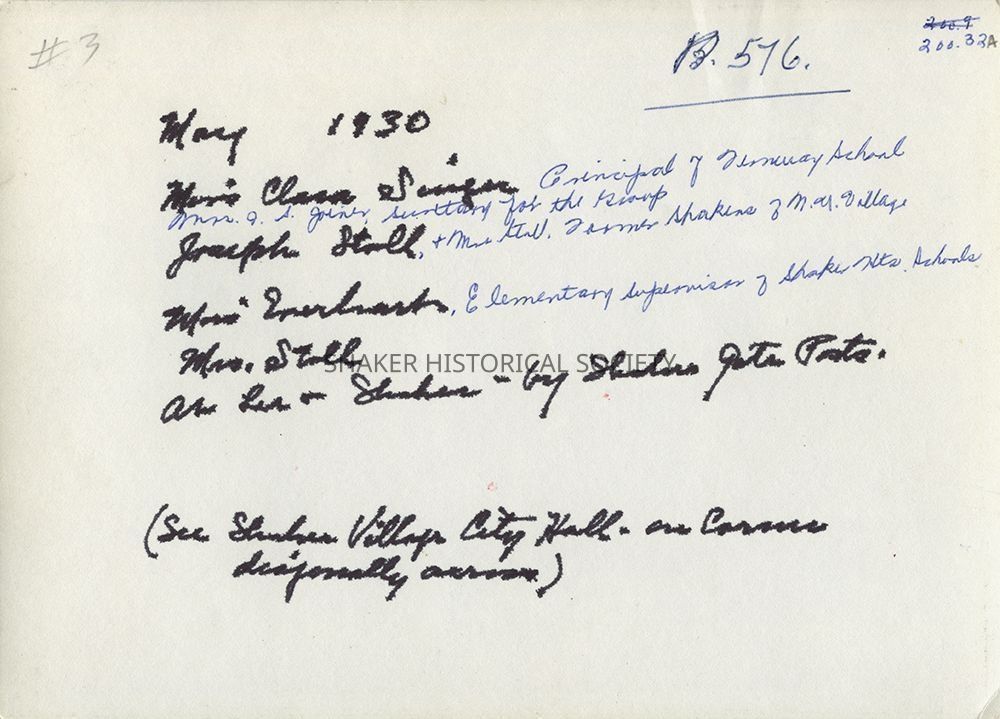 # 3
B. 576.
200.9
200.32A
May 1930
Miss Clara Singer Principal of School
Mrs. J. S. Joiner, secretary for the Group
Joseph Stoll, + Mrs Stoll, Former Shakers of N. U. Village
Miss Everhart, Elementary supervisor of Shaker Hts. Schools
Mrs. Stoll
SHAKER HISTORICAL SOCIETY
at Lee + Shaker - by Shaker Gate Posts.
(See Shaker Village City Hall - on Corner
diagonally across)